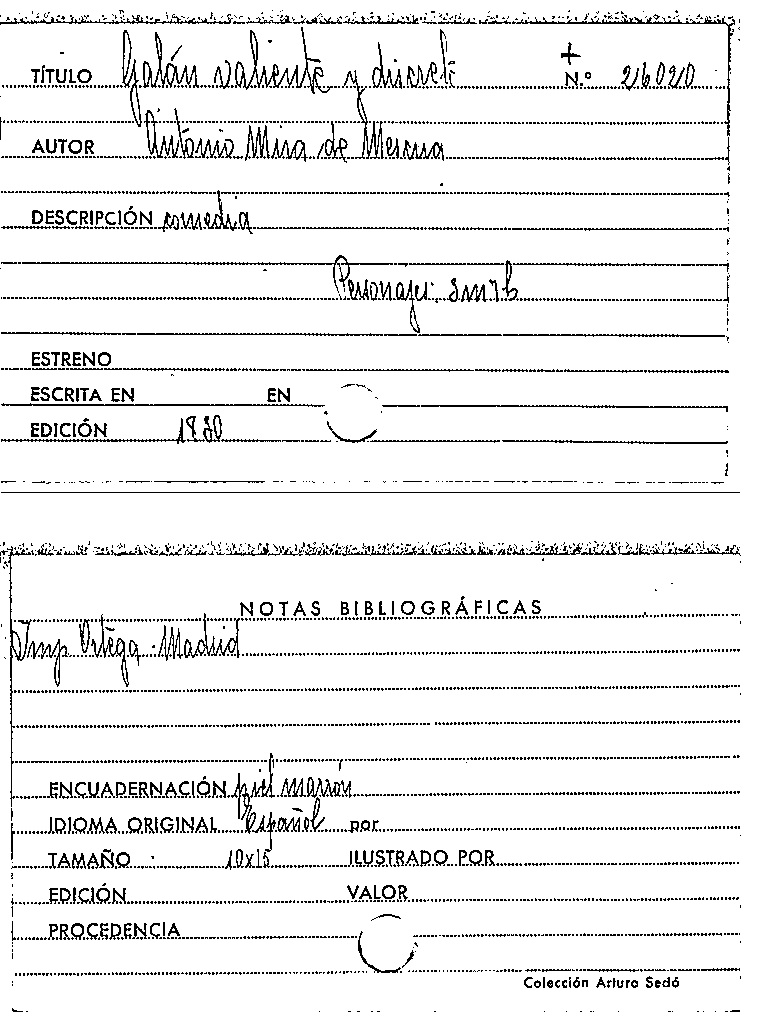 TÍTULO Galán valiente y discret + N.º 26020
AUTOR Antonio Mira de Mescua
DESCRIPCIÓN comedia
Personajes: 3m7h
ESTRENO
ESCRITA EN EN
EDICIÓN 1830
NOTAS BIBLIOGRÁFICAS
Imp Ortega. Madrid
ENCUADERNACIÓN piel marrón
IDIOMA ORIGINAL Español por
TAMAÑO 10x15 ILUSTRADO POR
EDICIÓN VALOR
PROCEDENCIA
Colección Arturo Sedó